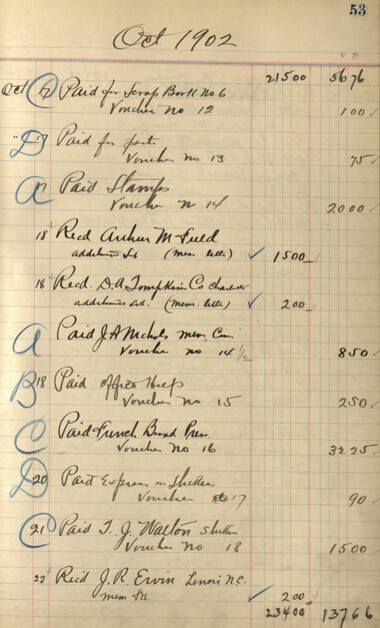 53
Oct 1902
215 00 56 76
Oct 17 C Paid for Scrap Book No 6
Voucher no 12 1 00
" 17 D Paid for
Voucher no 13 75
17 A Paid Stamps
Voucher no 14 20 00
18 Recd Arthur M Field
additional Sub (Mem. letter) ✓ 15 00
18 Recd. D. A Tompkins Co Charlotte
additional Sub. (Mem. letter) ✓ 2 00
A Paid J A Nichols mem. Com
Voucher no 14 1/2 8 50
B 18 Paid office Help
Voucher no 15 2 50
C Paid French Broad Press
Voucher no 16 32 25
D 20 Paid Express on
Voucher 17 90
C 21 Paid T. J. Walton
Voucher no 18 15 00
22 Recd J. R. Ervin Lenoir N.C.
mem ✓ 2 00
234 00 137 66